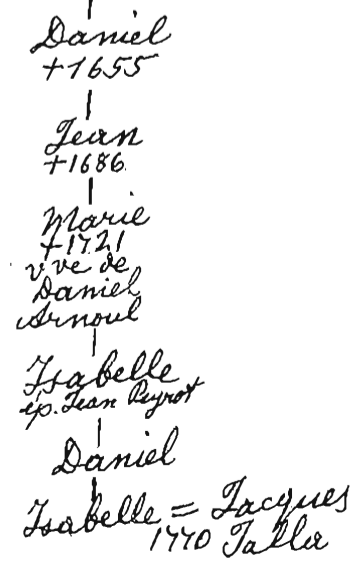 Daniel
+1655
Jean
+1686
Marie
+1721
vve de
Daniel
Arnoul
Isabelle
ép. Jean Peyrot
Daniel
Isabelle = Jacques
1770 Talla